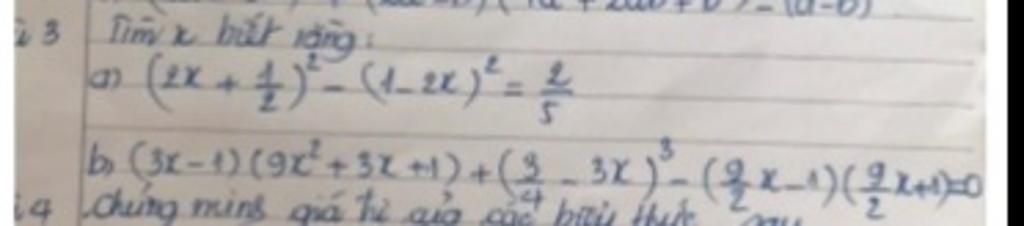 3 Tìm x biết rằng:
a) (2x + 1/2)² - (1 - 2x)² = 2/5
b) (3x - 1)(9x² + 3x + 1) + (3/4 - 3x)³ - (9/2 x - 1)(9/2 x + 1) = 0
4 Chứng minh giá trị của các biểu thức sau